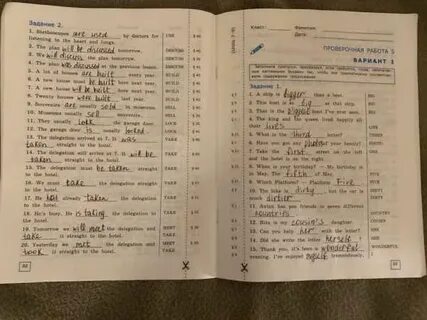 Задание 2.
1. Stethoscopes are used by doctors for USE
listening to the heart and lungs.
2. The plan will be discussed tomorrow. DISCUSS
3. We will discuss the plan tomorrow. DISCUSS
4. The plan was discussed at the previous DISCUSS
lesson.
5. A lot of houses are built every year. BUILD
6. A new house will be built next year. BUILD
7. New houses are built every year. BUILD
8. Twenty houses were built last year. BUILD
9. Souvenirs are usually sold in museums. SELL
10. Museums usually sell souvenirs. SELL
11. They usually lock the garage door. LOCK
12. The garage door is usually locked. LOCK
13. The delegation arrived at 7. It was TAKE
taken straight to the hotel.
14. The delegation will arrive at 7. It will be TAKE
taken straight to the hotel.
15. The delegation must be taken straight TAKE
to the hotel.
16. We must take the delegation straight TAKE
to the hotel.
17. He has already taken the delegation TAKE
to the hotel.
18. He's busy. He is taking the delegation TAKE
to the hotel.
19. Tomorrow we will meet the delegation and MEET
take it straight to the hotel. TAKE
20. Yesterday we met the delegation and MEET
took it straight to the hotel. TAKE
Класс: Фамилия
Дата:
ПРОВЕРОЧНАЯ РАБОТА 5
ВАРИАНТ 1
Задание 1.
1. A ship is bigger than a boat. BIG
2. This boat is as big as that ship. BIG
3. This is the biggest boat I've ever seen. BIG
4. The king and the queen lead happily all
their lives
5. What is the third letter? THREE
6. Have you got any photos of your family?
7. Take the first street on the left ONE
and the hotel is on the right.
8. When is your birthday? – My birthday is
in May. The fifth of May. FIVE
9. Which Platform? – Platform Five FIVE
10. The bike is dirty, but the car is much DIRTY
dirtier DIRTY
countries COUNTRY
12. Nina is my cousin's daughter. COUSIN
13. Can you help her with the letter? SHE
14. Did she write the letter herself? SHE
15. Thank you, it's been a wonderful WONDERFUL
evening. I've enjoyed myself tremendously. I